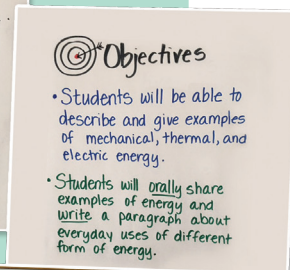 Objectives
• Students will be able to
describe and give examples
of mechanical, thermal, and
electric energy.
• Students will orally share
examples of energy and
write a paragraph about
everyday uses of different
form of energy.